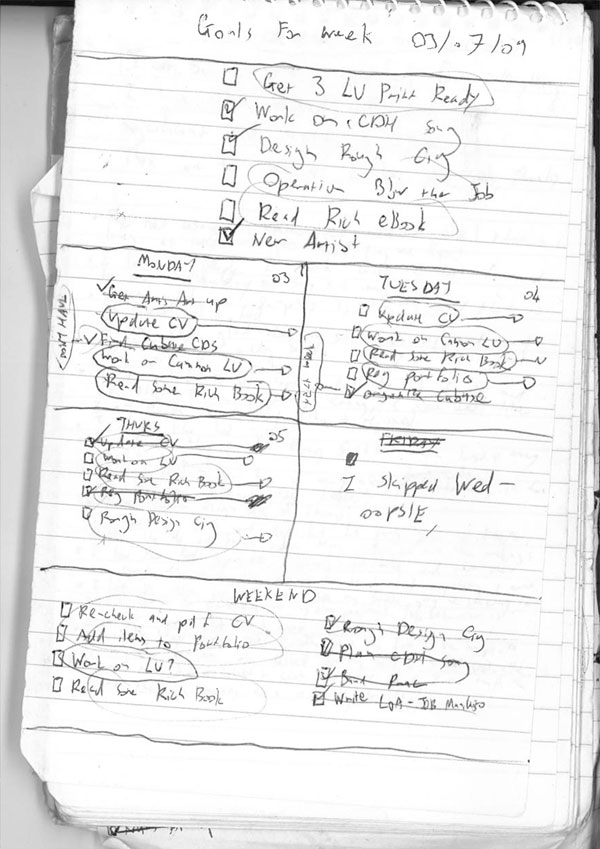 Goals For week 03/07/09
Get 3 LV Print Ready
Work on CDH Song
Design Rough Gig
Operation Blow the Job
Read Rich eBook
New Artist
MONDAY 03
Get Artis Art up
Update CV
Find Cubase CDS
DON'T HAVE
Work on Cannon LV
Read Some Rich Book
TUESDAY 04
Update CV
Work on Cannon LV
Read Some Rich Book
Reg portfolio
organise Cubase
THURS 05
Update CV
Work on LV
Read Some Rich Book
Reg Portfolio
Rough Design Gig
FRIDAY
I skipped Wed-
oopsie,
WEEKEND
Re-check and pdf CV
Add items to Portfolio
Work on LV?
Read Some Rich Book
Rough Design Gig
Plan CDH Song
Write LOA - JOB